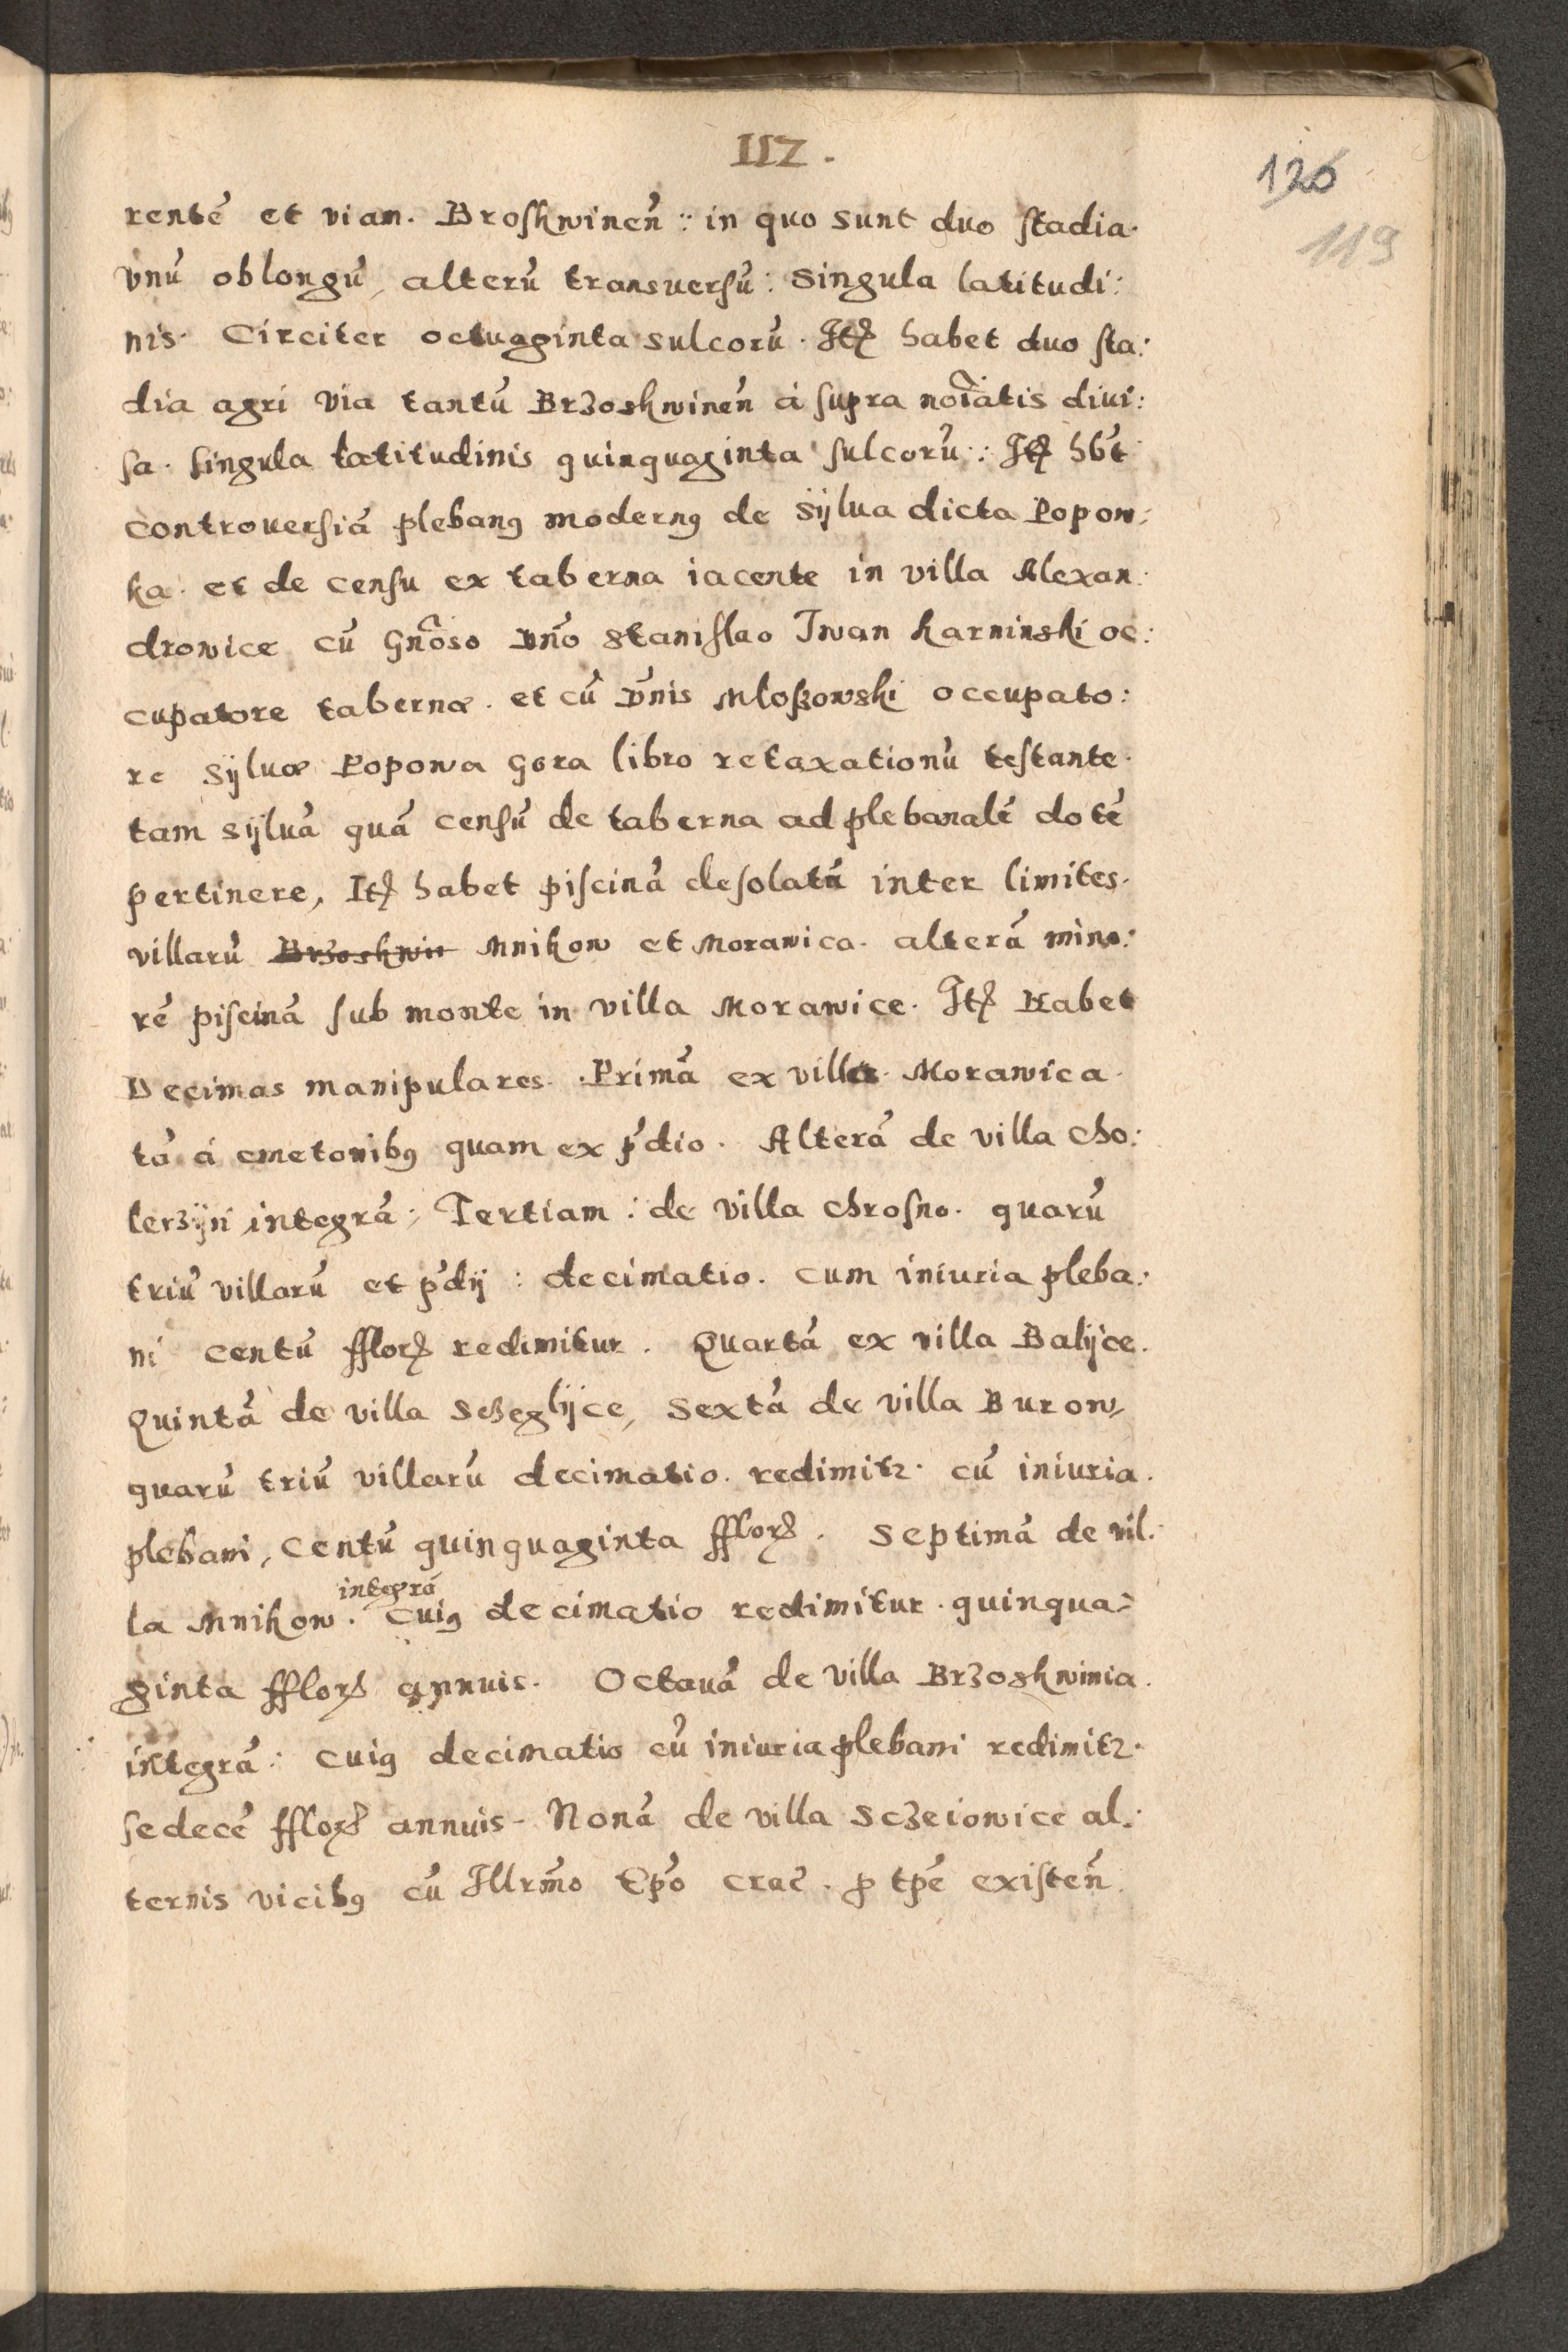 112.
126
119
rentē et vian. Broskwinen̄ : in quo sunt duo stadia.
vnū oblongū, alterū transuersū : Singula latitudi:
nis. Circiter octuaginta sulcorū. Itꝫ habet duo sta:
dia agri via tantū Brzoskwinen̄ á supra noīatis diui:
sa. singula latitudinis quinquaginta sulcorū : Itꝫ hb̄t
controuersiā plebanꝰ modernꝰ de Sÿlua dicta Popow:
ka. et de censu ex taberna iacente in villa Alexan:
drowice cū Gn̄oso Dn̄o Stanislao Iwan Karninski oc:
cupatore tabernæ. et cū Dn̄is Mloßowski occupato:
re Sÿluæ Popowa Gora libro retaxationū testante.
tam sÿluā quā censū de taberna ad plebanalē dotē
pertinere, Itꝫ habet piscinā desolatā inter limites.
villarū Brzoskwin Mnikow et Morawica. alterā mino:
rē piscinā sub monte in villa Morawice. Itꝫ Habet
Decimas manipulares. Primā ex villa. Morawica.
tā á cmetonibꝰ quam ex p̄dio. Alterā de villa Cho:
lerzÿn integrā; Tertiam : de villa Chrosno. quarū
triū villarū et p̄dij : decimatio. cum iniuria pleba:
ni centū fflorꝫ redimitur. Quartā ex villa Balÿce.
Quintā de villa Sczeglÿce, Sextā de villa Burow,
quarū triū villarū decimatio. redimitꝛ. cū iniuria.
plebani, Centū quinquaginta fflorꝫ. Septimā de vil.
integrā
la Mnikow. Cuiꝰ decimatio redimitur. quinqua:
ginta fflorꝫ annuis. Octauā de villa Brzoskwinia.
integrā : cuiꝰ decimatio cū iniuria plebani redimitꝛ.
sedecē fflorꝫ annuis. Nonā de villa Sczeiowice al:
ternis vicibꝰ cū Illrm̄o Ep̄o Crac̄. ꝓ tp̄e existen̄.